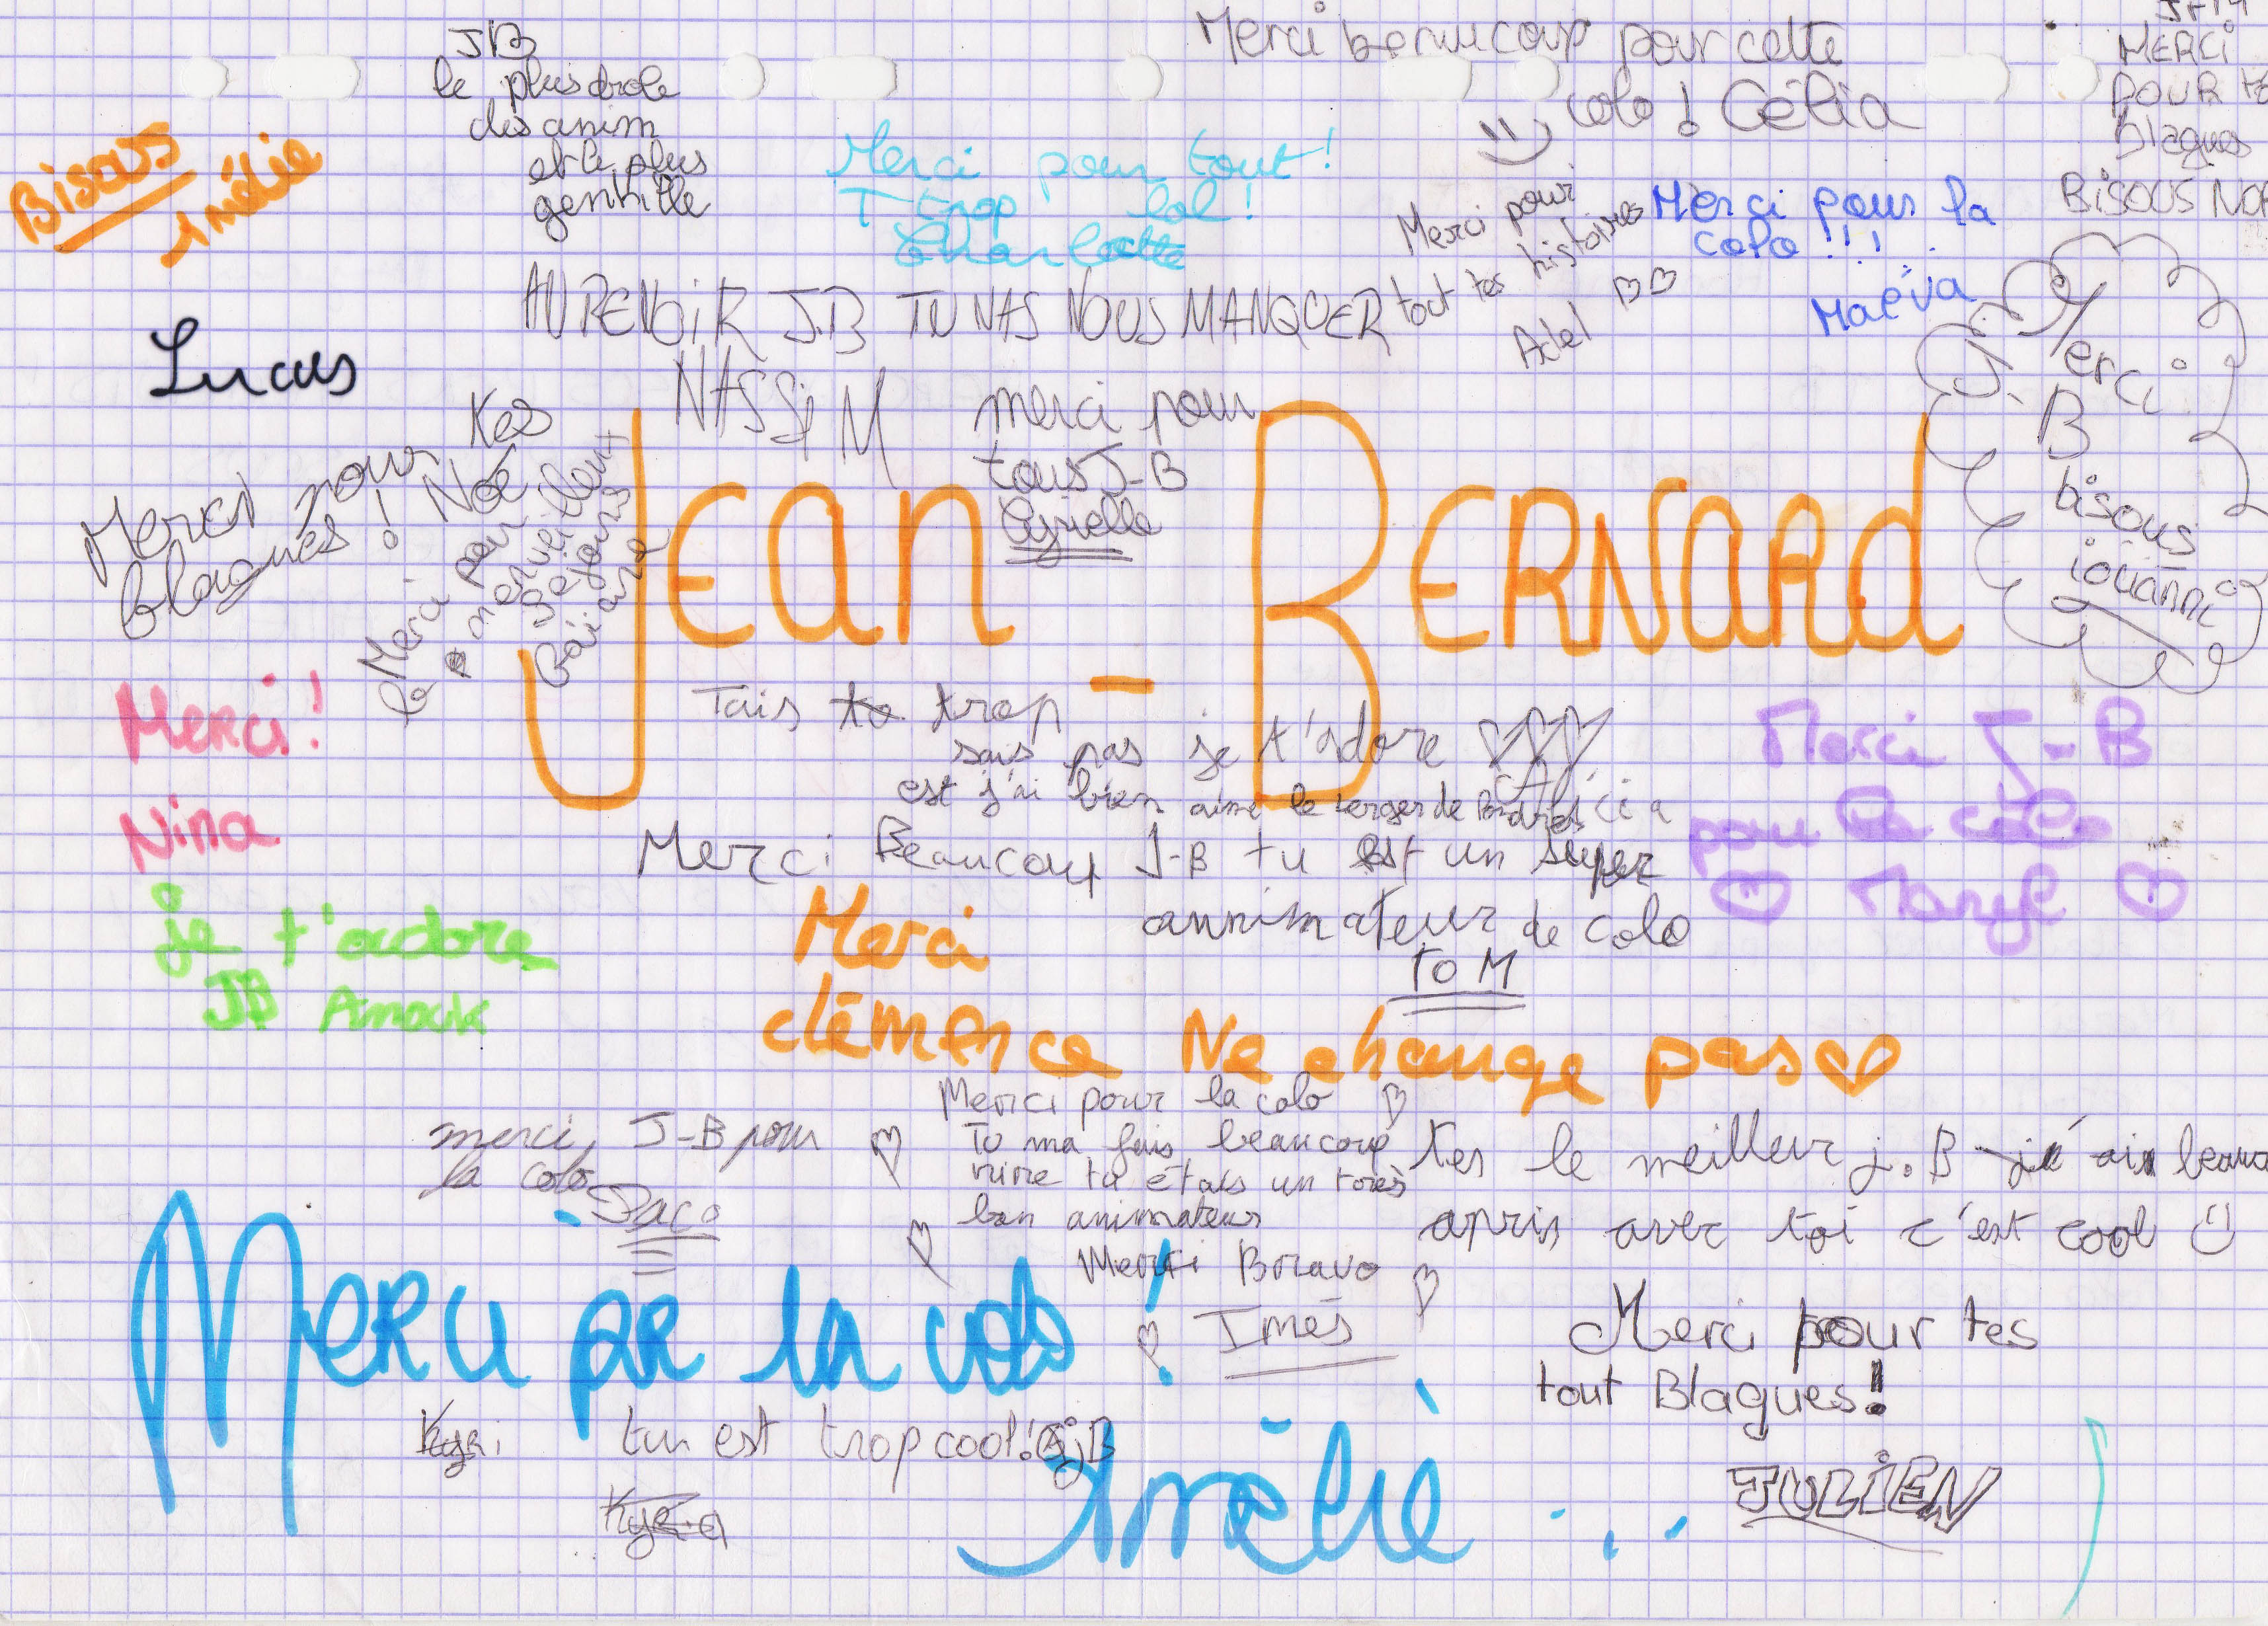 JB
le plus drole
des anim
et le plus
gentille
Merci beaucoup pour cette
colo ! Célia
MERCI
POUR
Blagues
BISOUS
Bisous
Amélie
Merci pour tout !
T trop lol !
Charlotte
Merci pour
tout tes histoires
Adel
Merci pour la
colo !!!
Maéva
AU REVOIR J.B TU VAS NOUS MANQUER
NASSiM
Lucas
merci pour
tous J-B
Cyrielle
Merci
J.
B
bisous
Merci pour tes
blagues ! Noé
Merci pour
la merveilleux
séjours
JEAN - BERNARD
Merci !
Nina
Tais to trop
sais pas je t'adore
est j'ai bien aimé le berger de
Merci Beaucoup J-B tu est un super
annimateur de colo
TOM
Merci J-B
pour la colo
je t'adore
JB Anouk
Merci
clémence Ne change pas
merci J-B pour
la colo
Paco
Merci pour la colo
Tu ma fais beaucoup
rire tu étais un très
bon animateur
Merci Bravo
Inès
tes le meilleur j.B
apris avec toi c'est cool
Merci pour tes
tout Blagues!
JULIEN
Merci pr la colo !
tu est trop cool! JB
Amélie ...